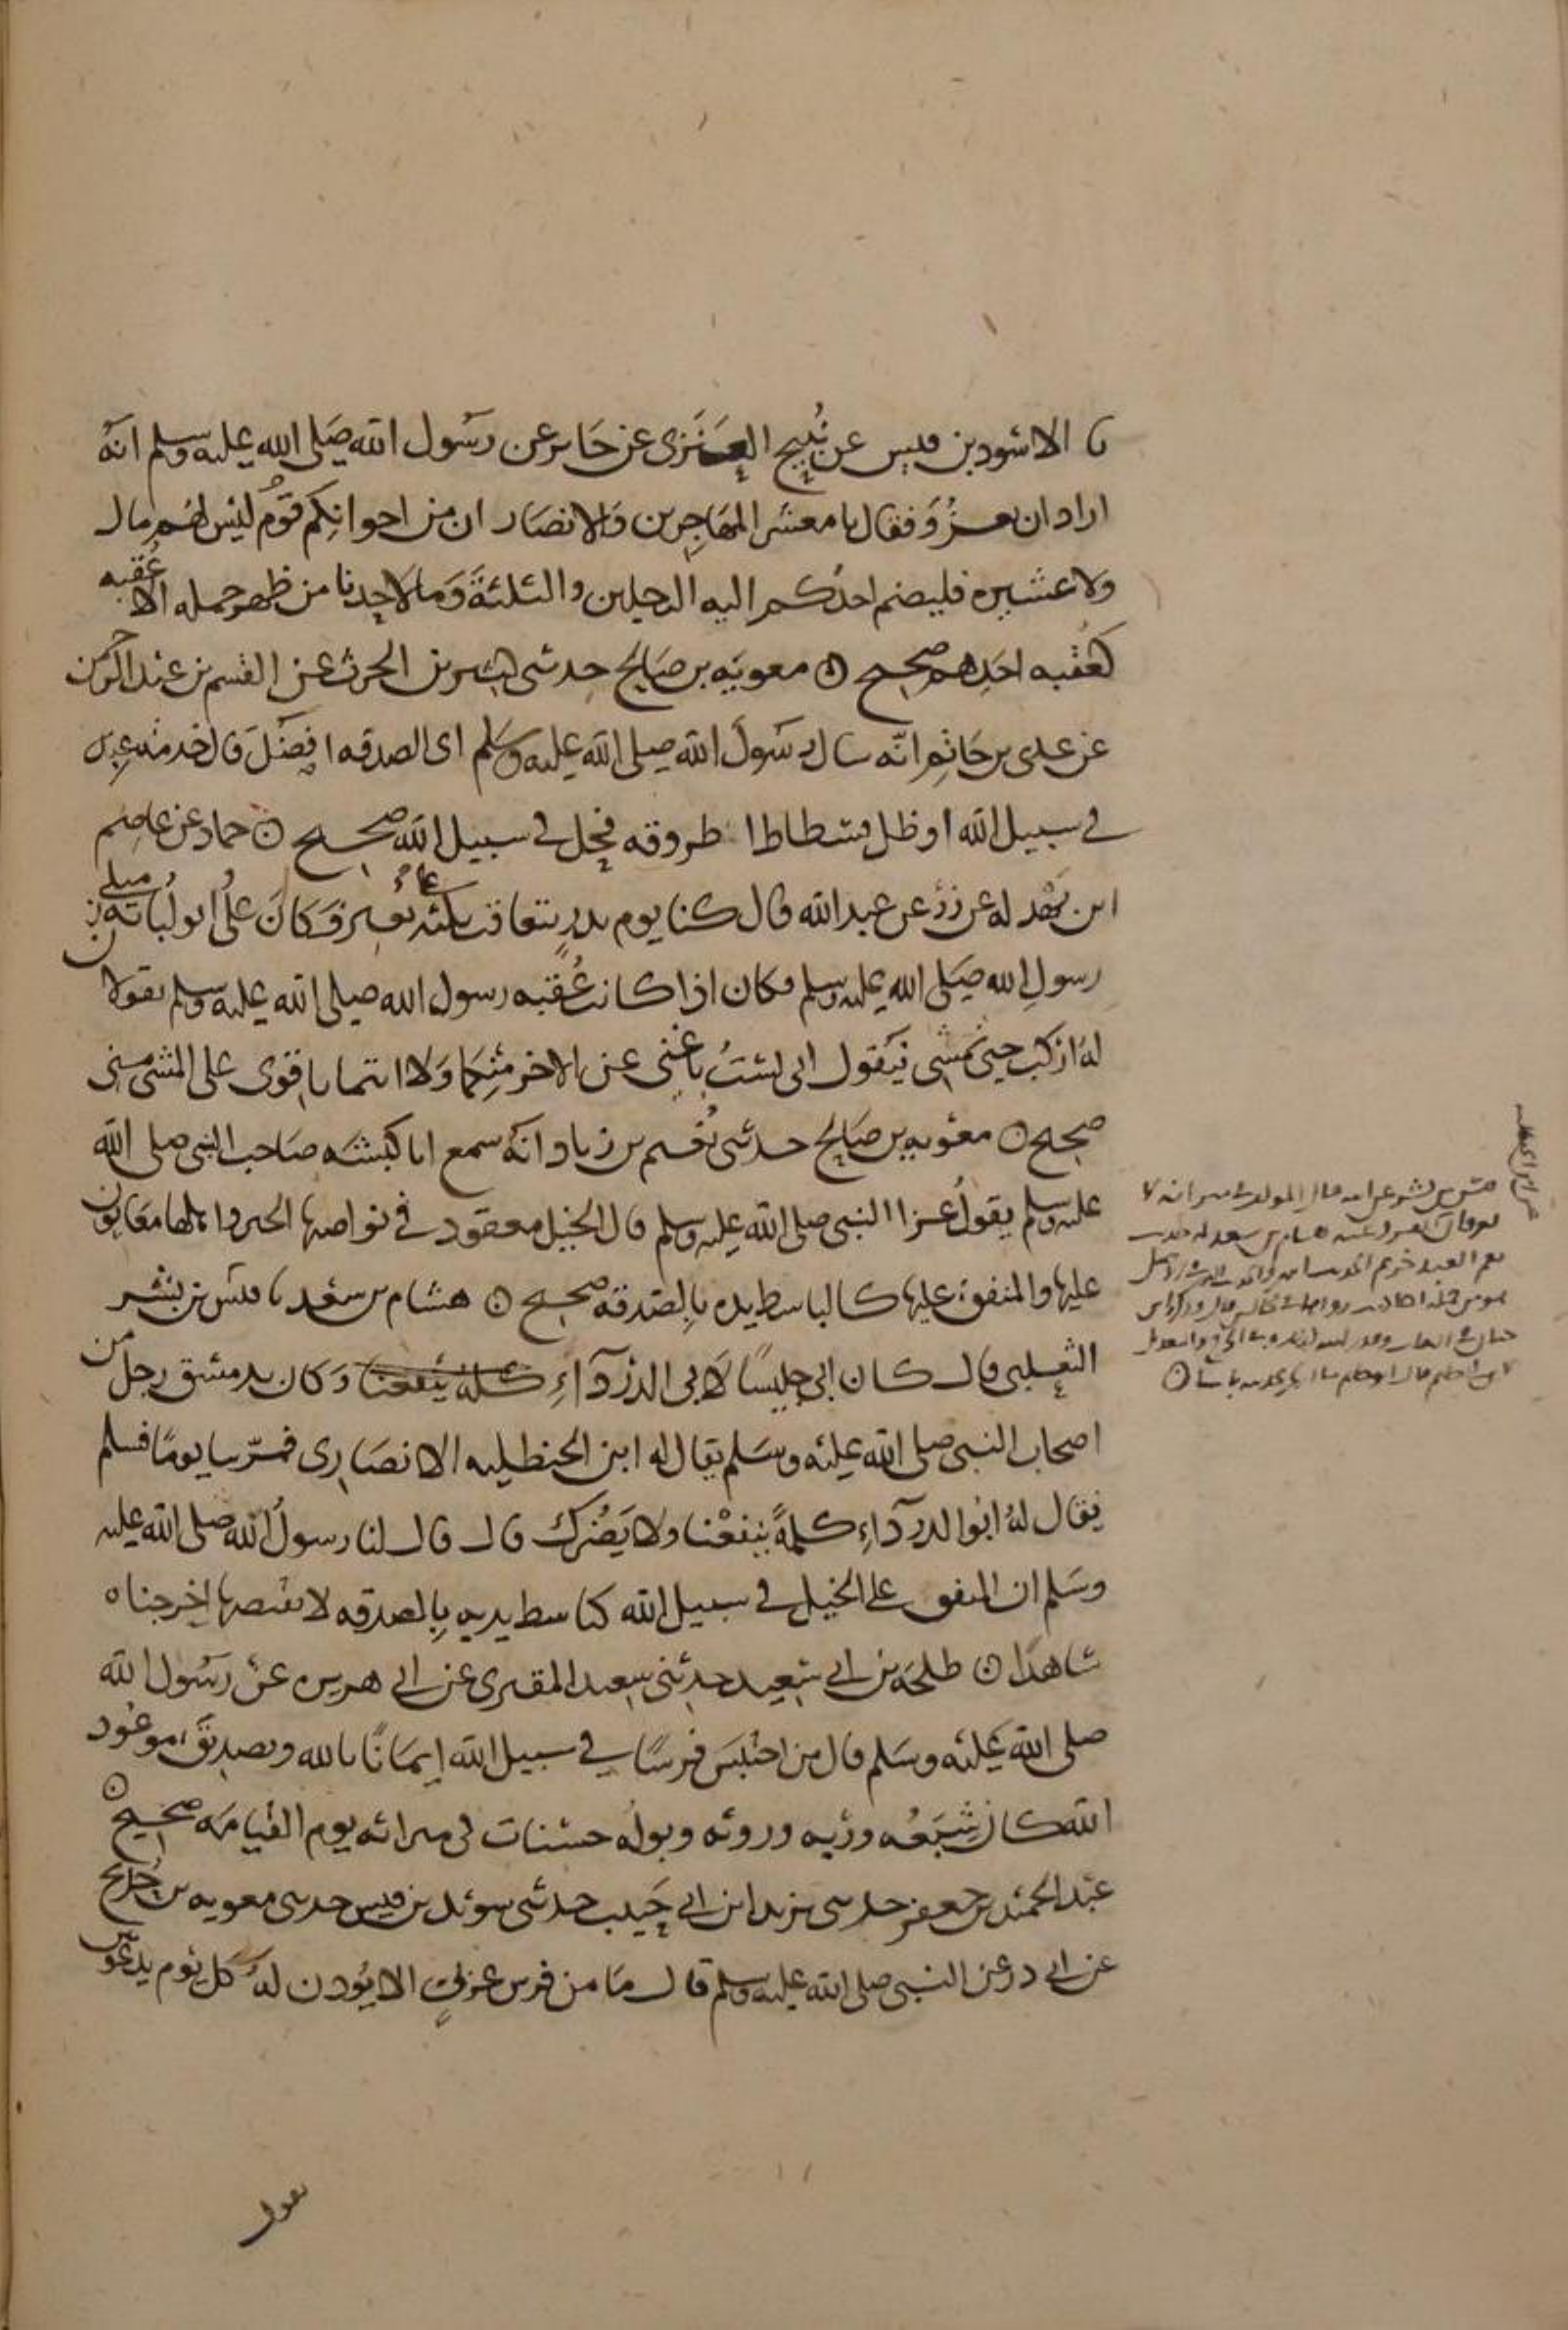 نا الاسود بن قيس عن نبيح العنزي عن جابر عن رسول الله صلى الله عليه وسلم انه
اراد ان يغزو فقال يا معشر المهاجرين والانصار ان من اخوانكم قوم ليس لهم مال
ولا عشيره فليضم احدكم اليه الرجلين والثلثة وما لاحدنا من ظهر جمله الا عقبه
كعقبه احدهم صحيح ۞ معويه بن صالح حدثني كثير بن الحرث عن القسم بن عبد الرحمن
عن عدي بن حاتم انه سال رسول الله صلى الله عليه وسلم اي الصدقه افضل قال خدمه عبد
في سبيل الله او ظل فسطاط او طروقه فحل في سبيل الله صحيح ۞ حماد عن عاصم
ابن بهدله عن زر عن عبد الله قال كنا يوم بدر نتعاقب ثلثه على بعير فكان علي وابو لبابة زميلي
رسول الله صلى الله عليه وسلم فكان اذا كانت عقبه رسول الله صلى الله عليه وسلم يقولان
له اركب حتى نمشي فيقول اني لست باغنى عن الاجر منكما ولا انتما باقوى على المشي مني
صحيح ۞ معويه بن صالح حدثني نعيم بن زياد انه سمع ابا كبشه صاحب النبي صلى الله
عليه وسلم يقول عن النبي صلى الله عليه وسلم قال الخيل معقود في نواصيها الخير واهلها معانون
عليها والمنفق عليها كالباسط يده بالصدقه صحيح ۞ هشام بن سعد نا قيس بن بشر
الثعلبي قال كان ابي جليسا لابي الدرداء كلمه ينفعنا وكان بدمشق رجل من
اصحاب النبي صلى الله عليه وسلم يقال له ابن الحنظليه الانصاري فمر بنا يوما فسلم
فقال له ابو الدرداء كلمة تنفعنا ولا يضرك قال قال لنا رسول الله صلى الله عليه
وسلم ان المنفق على الخيل في سبيل الله كباسط يديه بالصدقه لا يقبضها اخرجناه
شاهدا ۞ طلحه بن ابي سعيد حدثني سعيد المقبري عن ابي هريره عن رسول الله
صلى الله عليه وسلم قال من احتبس فرسا في سبيل الله ايمانا بالله وتصديق موعود
الله كان شبعه وريه وروثه وبوله حسنات في ميزانه يوم القيامه صحيح ۞
عبد الحميد بن جعفر حدثني يزيد ابن ابي حبيب حدثني سويد بن قيس حدثني معويه بن حديج
عن ابي ذر عن النبي صلى الله عليه وسلم قال ما من فرس عربي الا يوذن له كل يوم بدعوتين
يقول